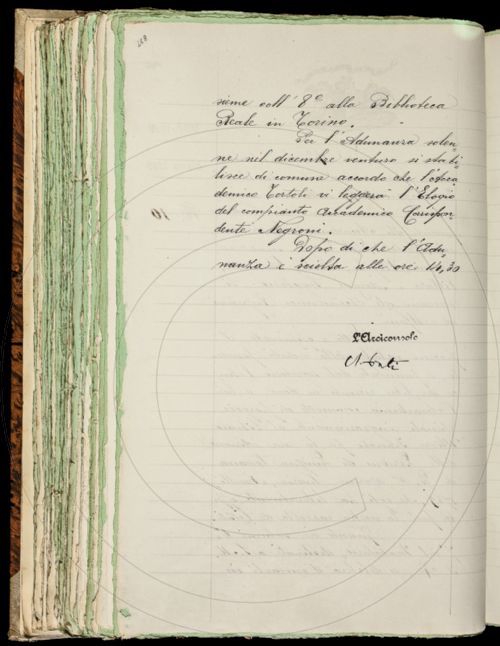 sieme coll' 8° alla Biblioteca
Reale in Torino.
Per l'Adunanza solen-
ne nel dicembre venturo si stabi-
lisce di comune accordo che l'Acca-
demico Tortoli vi leggerà l'Elogio
del compianto Accademico Corrispon-
dente Negroni.
Dopo di che l'Adu-
nanza è sciolta alle ore 14,30
L'Arciconsolo